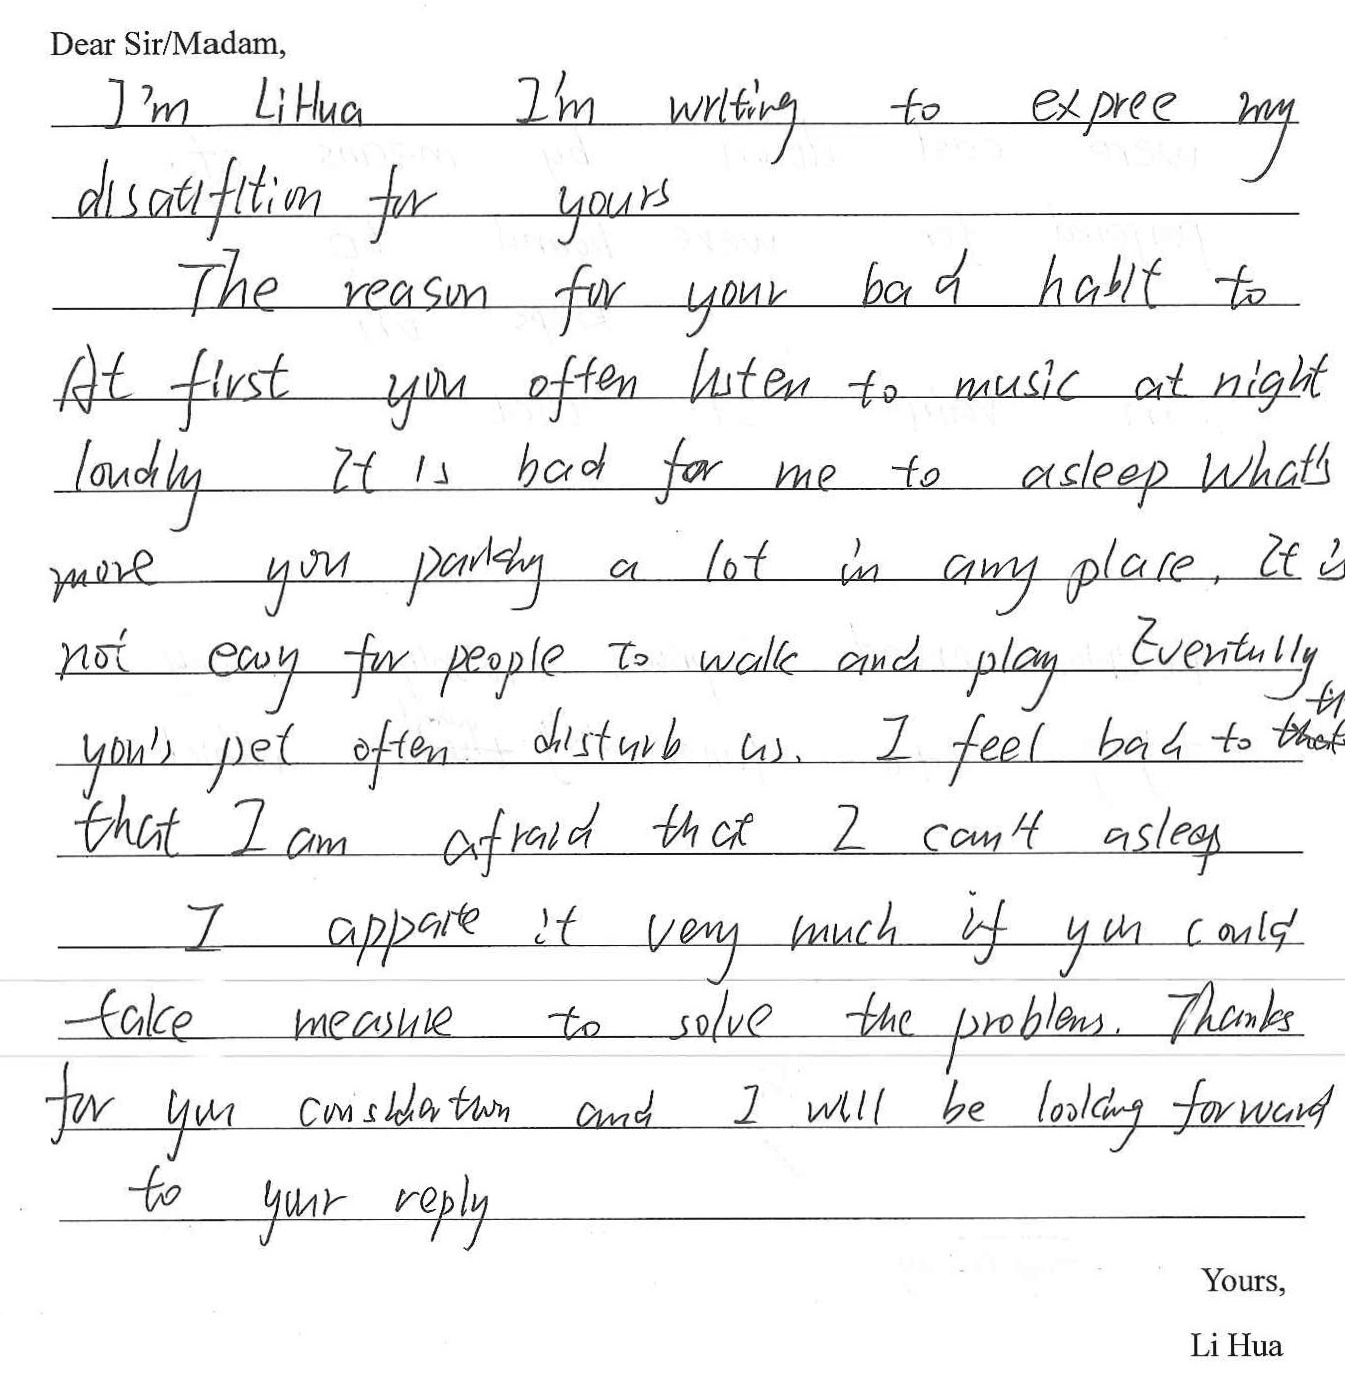 Dear Sir/Madam,
I'm Li Hua I'm writing to expree my
disatifition for yours
The reason for your bad habit to
At first you often listen to music at night
loudly It is bad for me to asleep What's
more you a lot in any place. It is
not easy for people to walk and play Eventully
you's pet often disturb us. I feel bad to
that I am afraid that I can't asleep
I apparte it very much if you could
take measure to solve the problems. Thanks
for your and I will be looking forward
to your reply
Yours,
Li Hua